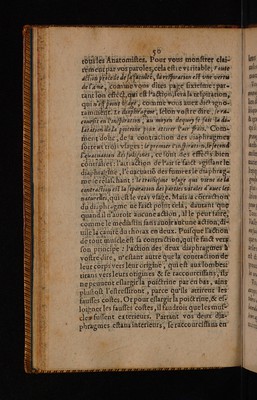 50
tous les Anatomistes. Pour vous monstrer clai-
rement par vos paroles, cela estre veritable, toute
action procede de sa faculté, la respiration est une vertu
de l'ame, comme vous dites page sixiéme: par-
tant son effect, qui est l'action, sera la respiration,
qui n'est point usage, comme vous avez dit igno-
ramment. Le diaphragme, selon vostre dire,
en l'inspiration, au moyen dequoy se fait la di-
latation de la poictrine pour attirer l'air frais. Com-
ment donc, de la contraction des diaphragmes
sortent trois usages: le premier l'inspiration, le second
l'evacuation des fuligines, ce sont des effects bien
contraires: l'attraction de l'air se fait
diaphragme, l'evacuation des fumées le diaphrag-
me le relaschant: le troisiesme usage qui vient de la
contraction est la separation des parties vitales d'avec les
naturelles, qui est le vray usage. Mais la contraction
du diaphragme ne faict point cela; d'autant que
quand il n'auroit aucune action, il le peut faire,
comme le mediastin sans
la cavité du thorax en deux. Puisque l'action
de tout muscle est sa contraction, qui se faict vers
son principe: l'action des deux diaphragmes à
vostre dire, n'estant autre que la contraction de
leur corps vers leur origine, qui est aux lombes:
tirans vers leurs origines & se raccourcissans, ils
ne peuvent eslargir la poictrine par en bas, ains
plustost l'estressiront, parce qu'ils attirent les
fausses costes. Or pour eslargir la poictrine, & es-
loigner les fausses costes, il faudroit que les mus-
cles fussent exterieurs. Partant vos deux dia-
phragmes estans interieurs, se raccourcissans en